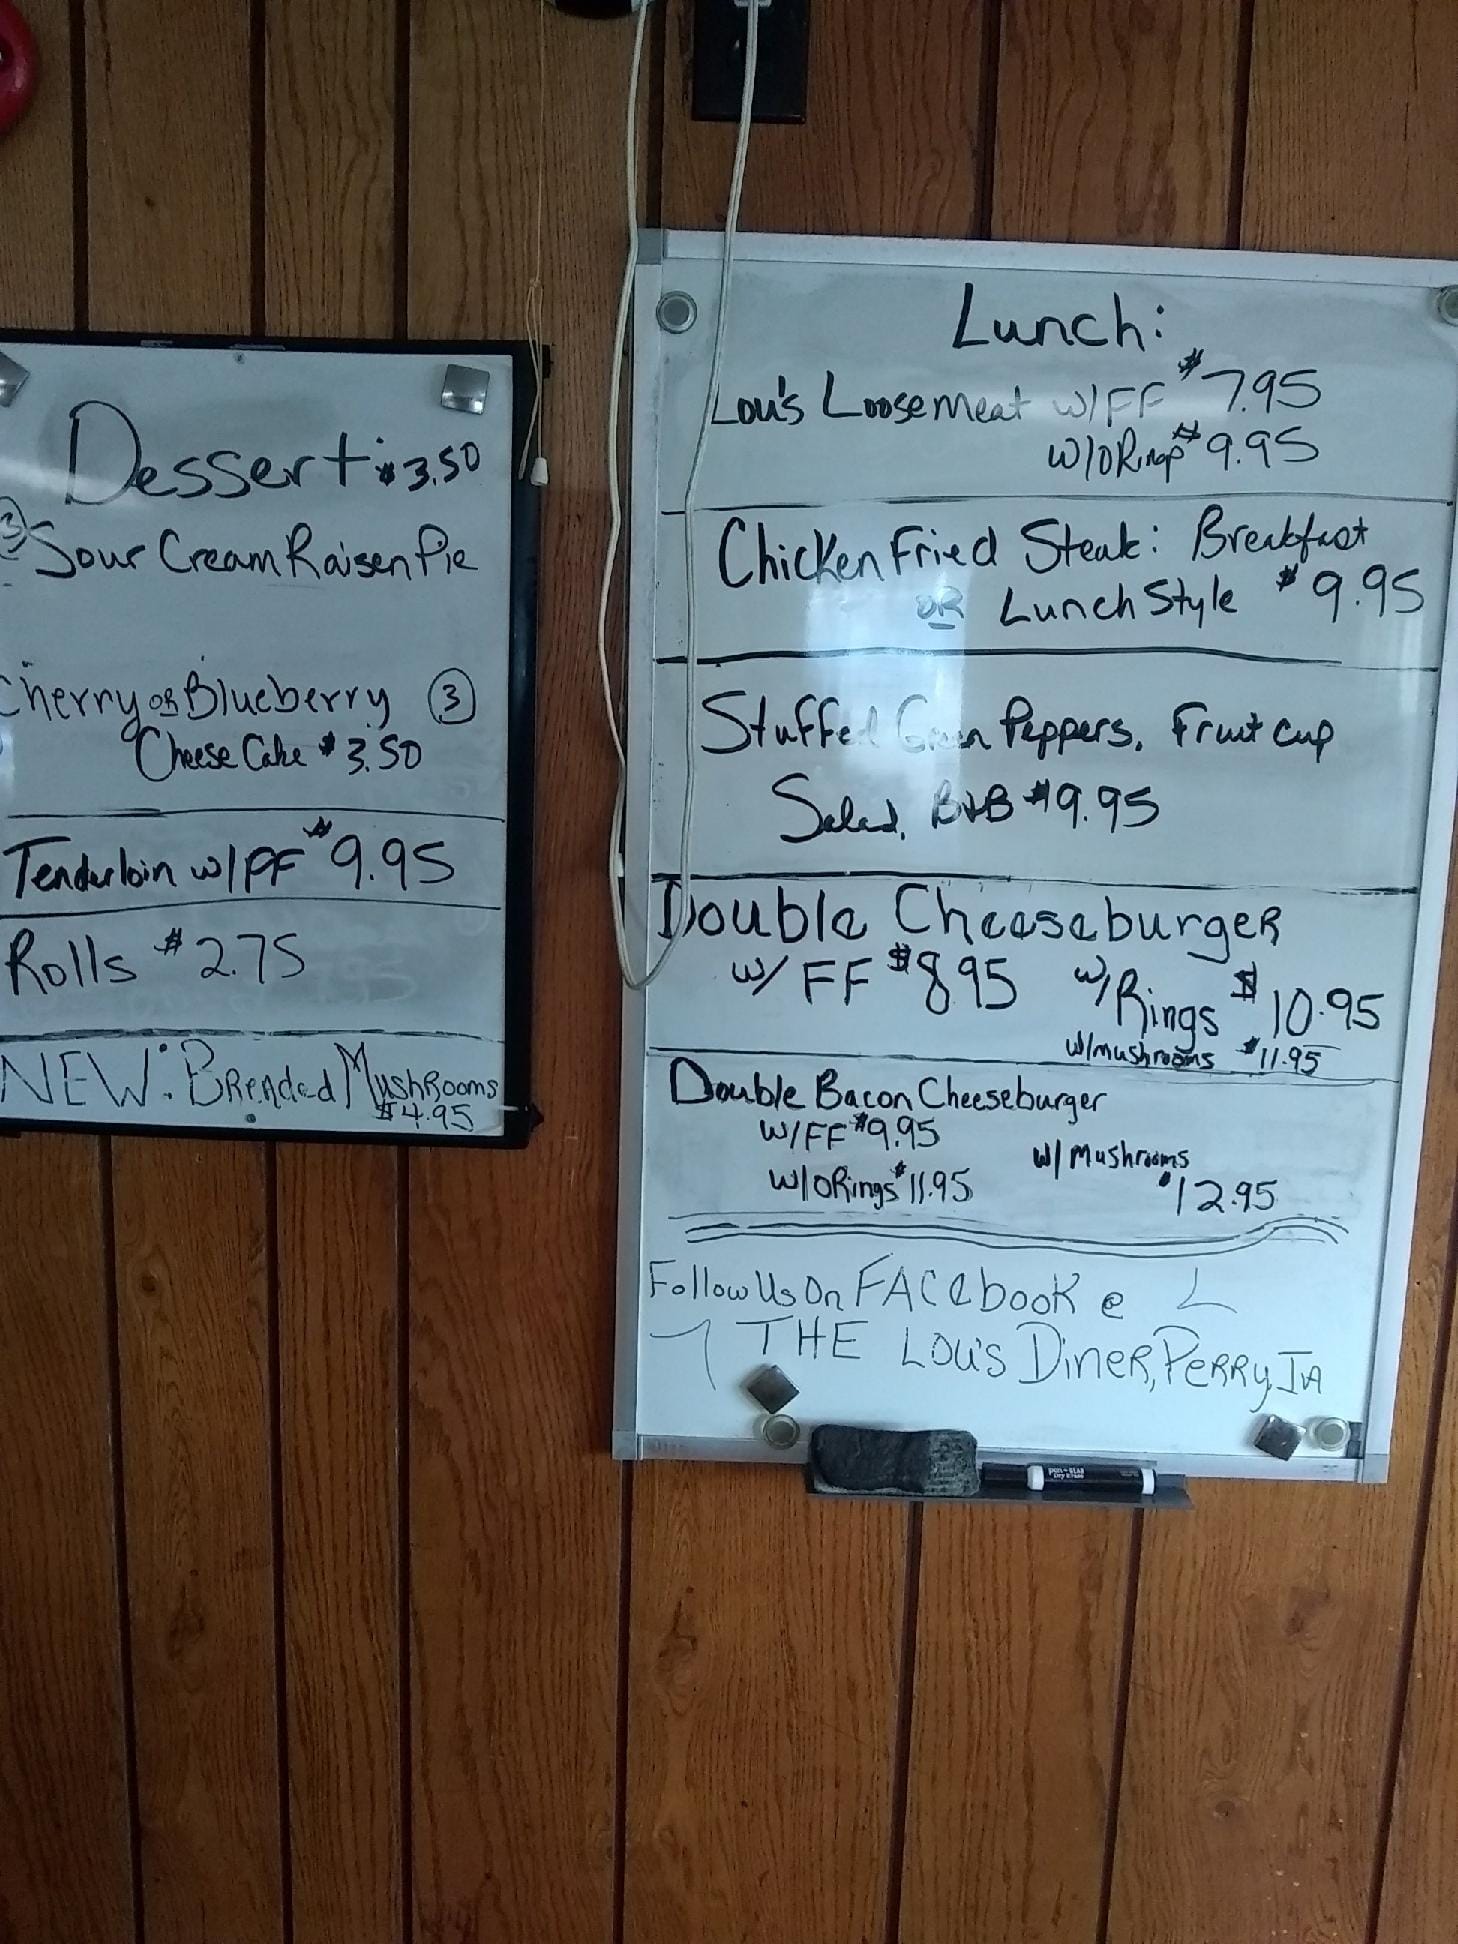 Dessert: $3.50
3 Sour Cream Raisen Pie
Cherry OR Blueberry 3
Cheese Cake $3.50
Tenderloin w/FF $9.95
Rolls $2.75
NEW: Breaded Mushrooms
$4.95
Lunch:
Lou's Loosemeat w/FF $7.95
w/oRings $9.95
Chicken Fried Steak: Breakfast
OR Lunch Style $9.95
Stuffed Green Peppers, Fruit cup
Salad, B&B $9.95
Double Cheeseburger
w/ FF $8.95 w/Rings $10.95
w/mushrooms $11.95
Double Bacon Cheeseburger
w/FF $9.95
w/ Mushrooms
w/oRings $11.95
$12.95
Follow Us On FACebooK @
THE Lou's Diner, Perry, IA